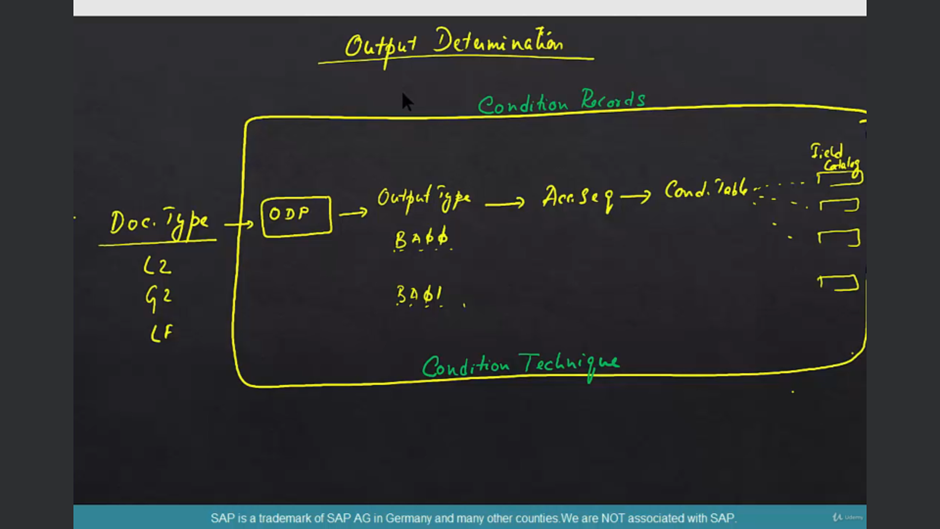 Output Determination
Condition Records
Field
Catalog
Doc. Type → ODP → Output Type → Acc. Seq → Cond. Table
L2
G2
LF
BAΦΦ
BAΦ1
Condition Technique
SAP is a trademark of SAP AG in Germany and many other counties.We are NOT associated with SAP.
Udemy